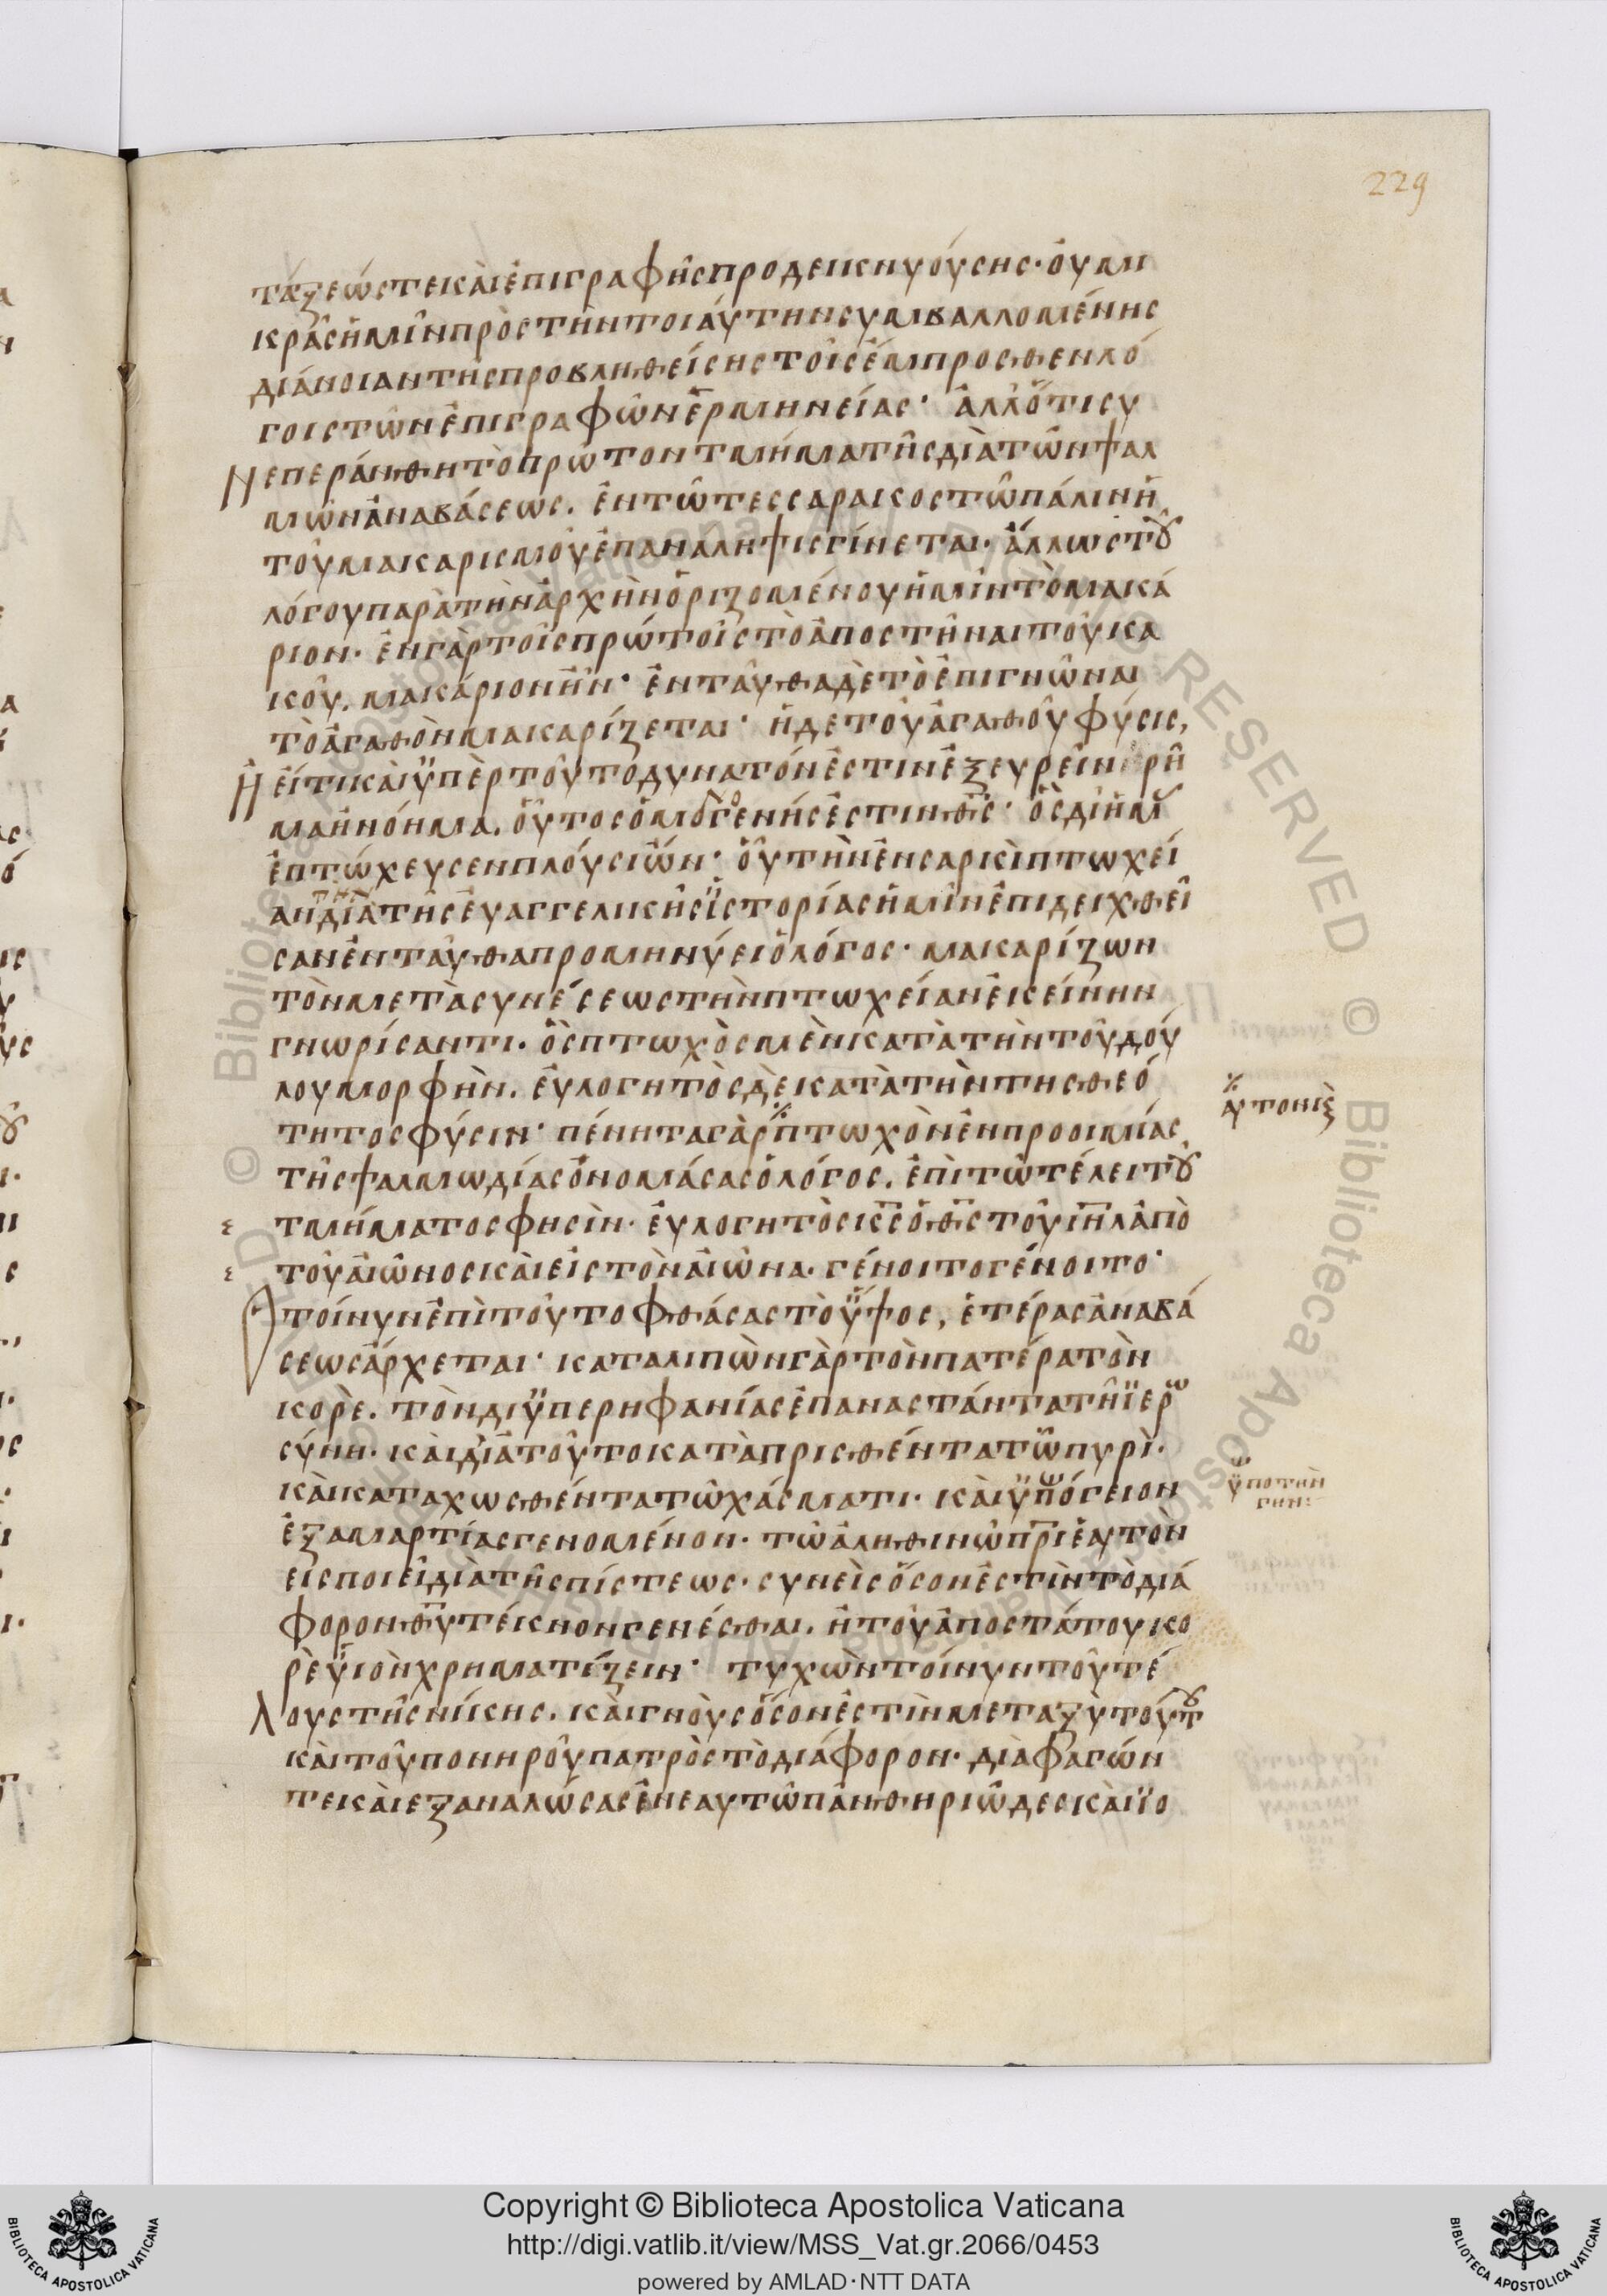 229
τάξεώς τε καὶ ἐπιγραφῆς προδεικνυούσης· οὐ μι
κρᾶς ἡμῖν πρὸς τὴν τοιάυτην συμβαλλομένης
διάνοιαν τῆς προβληθείσης τοῖς ἔμπροσθεν λό
γοις τῶν ἐπιγραφῶν ἑρμηνείας· ἀλλ' ὅτι συ
νεπεράνθη τὸ πρώτον τμήμα τῆς διὰ τῶν ψαλ
μῶν ἀναβάσεως. ἐν τῶ τεσσαρακοστῶ πάλιν ἡ
τοῦ μακαρισμοῦ ἐπαναληψις γίνεται· ἄλλως τοῦ
λόγου παρὰ τὴν ἀρχὴν ὁριζομένου ἡμῖν τὸ μακά
ριον· ἐν γὰρ τοῖς πρώτοις τὸ ἀποστῆναι τοῦ κα
κοῦ, μακάριον ἦν· ἐνταῦθα δὲ τὸ ἐπιγνῶναι
τὸ ἀγαθὸν μακαρίζεται· ἡ δε τοῦ ἀγαθοῦ φύσις,
ἢ εἴ τι καὶ ὑπὲρ τοῦτο δυνατόν ἐστιν ἐξευρεῖν ρῆ
μα ἢ νόημα. οὗτος ὁ μονογενής ἐστιν θς· ὃς δι ἡμᾶς
ἐπτώχευσεν πλούσιος ὤν· οὗ τὴν ἐν σαρκὶ πτωχεί
αν τὴν διὰ τῆς ἐυαγγελικῆς ἱστορίας ἡμῖν ἐπιδειχθεῖ
σαν ἐνταῦθα προμηνύει ὁ λόγος· μακαρίζων
τὸν μετὰ συνέσεως τὴν πτωχείαν ἐκείνην
γνωρίσαντι· ὃς πτωχὸς μὲν κατὰ τὴν τοῦ δού
λου μορφὴν. ἐυλογητὸς δὲ κατὰ τὴν τῆς θεό
τητος φύσιν· πένητα γὰρ πτωχὸν ἐν προοιμίας
τῆς ψαλμωδίας ὀνομάσας ὁ λόγος. ἐπὶ τῶ τέλει τοῦ
τμήματος φησὶν· ἐυλογητὸς κς ὁ θς τοῦ ιηλ ἀπὸ
τοῦ ἀιῶνος καὶ εἰς τὸν ἀιῶνα. γένοιτο γένοιτο·
Ὁ τοίνυν ἐπὶ τοῦτο φθάσας τὸ ὕψος, ἑτέρας ἀναβά
σεως ἄρχεται· καταλιπὼν γὰρ τὸν πατέρα τὸν
κορὲ. τὸν δι ὑπερηφανίας ἐπαναστάντα τῆ ϊερω
σύνη· καὶ διὰ τοῦτο καταπρισθέντα τῶ πυρὶ·
καὶ καταχωσθέντα τῶ χάσματι· καὶ ὑπόγειον
ἐξ αμαρτίας γενομένον· τῶ ἀληθινῶ πρι ἑαυτὸν
εισποιεῖ διὰ τῆς πίστεως· συνεὶς ὅσον ἐστὶν τὸ διά
φορον θυ τέκνον γενέσθαι. ἢ τοῦ ἀποστάτου κο
ρὲ ϋιὸν χρηματίζειν· τυχὼν τοίνυν τοῦ τέ
λους τῆς νίκης. καὶ γνοὺς ὅσον ἐστὶν μεταξὺ τούτου
καὶ τοῦ πονηροῦ πατρὸς τὸ διάφορον· διὰ φαγών
τε καὶ εξαναλώσας ἐν εαυτῶ πᾶν θηριῶδες καὶ ϊο
αυτον κς
ὑπο τὴν
γην:
Copyright © Biblioteca Apostolica Vaticana
http://digi.vatlib.it/view/MSS_Vat.gr.2066/0453
powered by AMLAD·NTT DATA
BIBLIOTECA APOSTOLICA VATICANA
BIBLIOTECA APOSTOLICA VATICANA